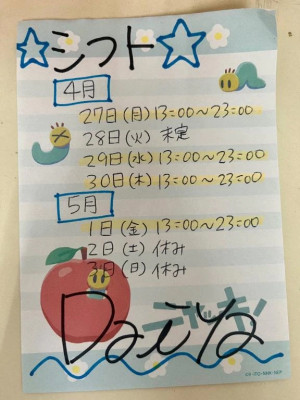 シフト
4月
27日(月)13:00〜23:00
28日(火) 未定
29日(水)13:00〜23:00
30日(木)13:00〜23:00
5月
1日(金)13:00〜23:00
2日(土)休み
3日(日)休み
Daiya